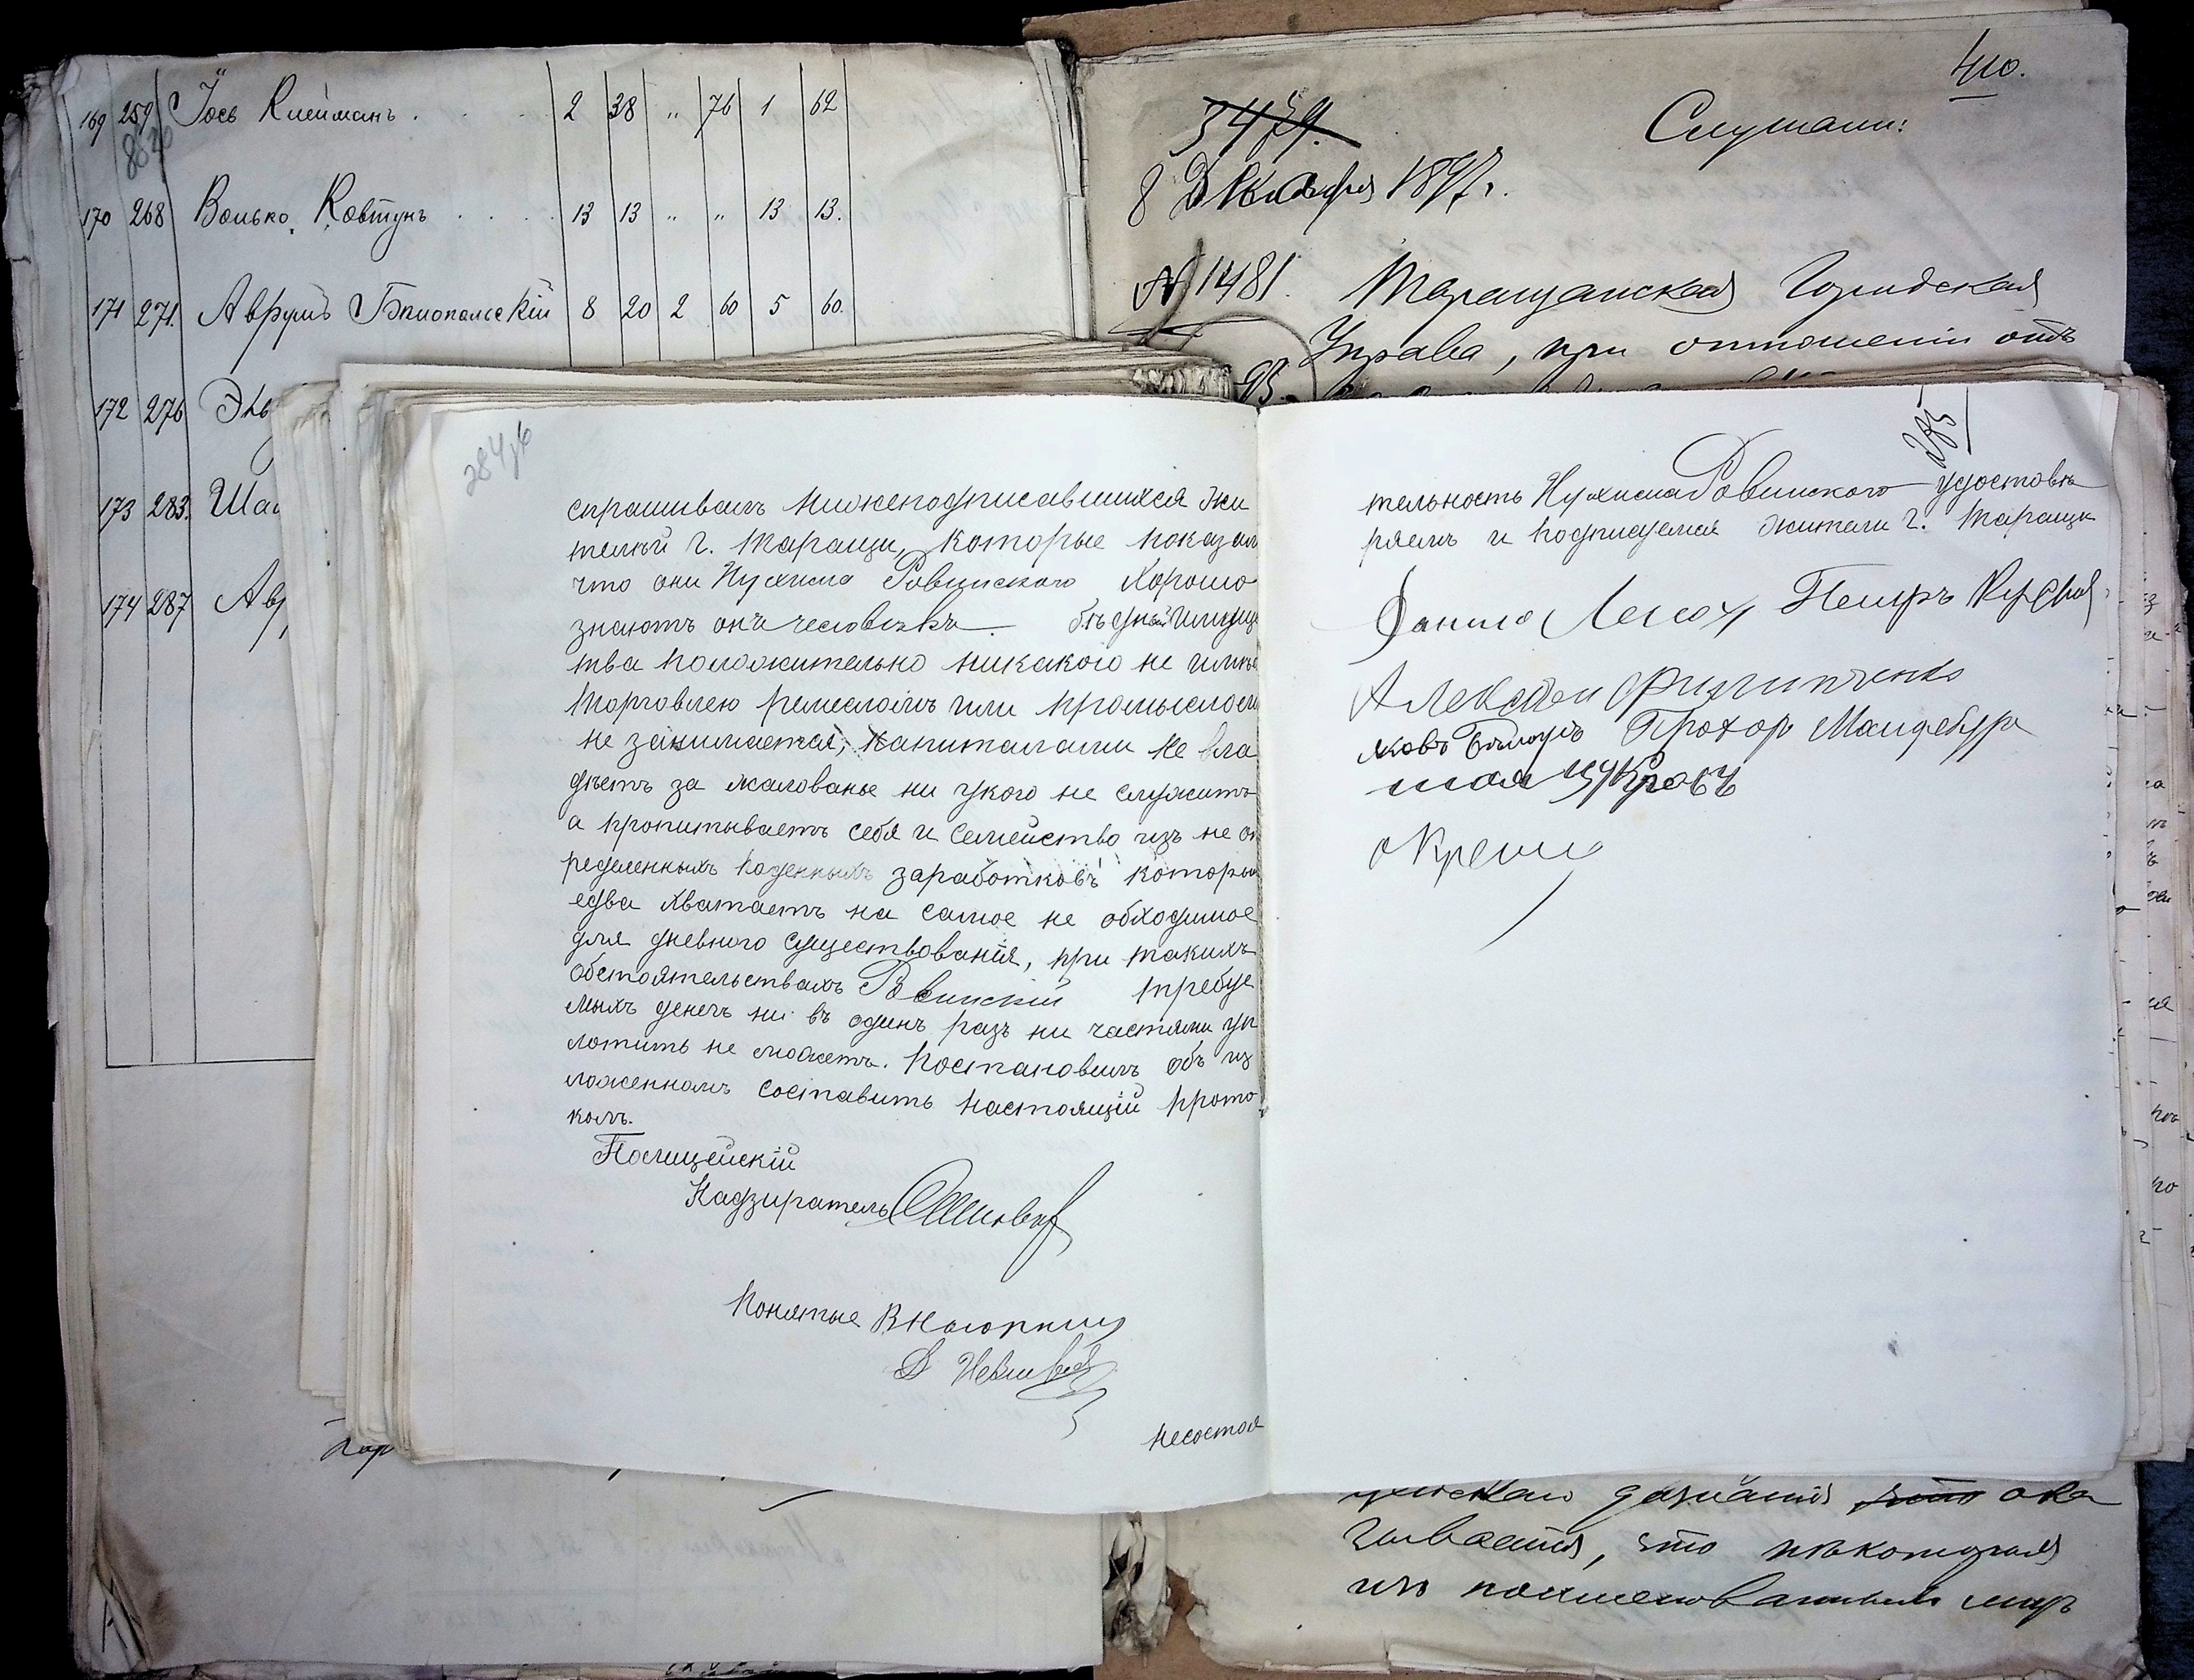 169 259 Іось Клейманъ . . . 2 38 „ 76 1 62
170 268 Волько Ковтунъ . . . 13 13 „ „ 13 13.
171 271. Аврумъ Бѣлопольскій 8 20 2 60 5 60.
172 276
173 283.
174 287
410.
3479.
Слушали:
8 Декабря 1897 г.
№ 1481. Таращанская Городская
Управа, при отношеніи отъ
93.
284 об
спрашивалъ нижеподписавшихся жи
телей г. Таращи, которые показали
что они Нухима Ровинского хорошо
знаютъ онъ человѣкъ бѣдный имущес
тва положительно никакого не имѣе
торговлею ремесломъ или промысломъ
не занимается, капиталами не вла
дѣетъ за жалованье ни укого не служитъ
а пропитываетъ себя и семейство изъ не оп
ределенныхъ поденныхъ заработковъ которы
едва хватаетъ на самое не обходимое
для дневного существованія, при такихъ
обстоятельствахъ Ровинскій требуе
мыхъ денегъ ни въ одинъ разъ ни частями уп
лотить не можетъ. Постановилъ объ из
ложенномъ составить настоящій прото
колъ.
Полицейскій
Надзиратель
Понятые
несостоя
285
тельность Нухима Ровинского удостовѣ
ряемъ и подписуемся жители г. Таращи
Данило Петръ
Алексей Филипченко
Прохор
оказ
зывается, что нѣкоторыя
изъ поименованныхъ